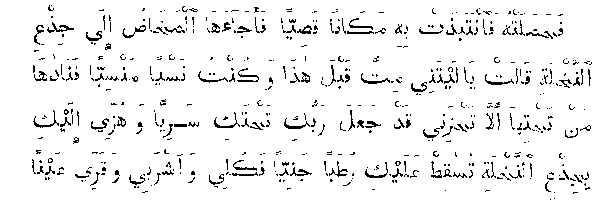 فَحَمَلَتْهُ فَٱنْتَبَذَتْ بِهِ مَكَانًا قَصِيًّا فَأَجَاءَهَا ٱلْمَخَاضُ إِلَي جِذْعِ
ٱلنَّخْلَةِ قَالَتْ يَالَيْتَنِي مِتُّ قَبْلَ هٰذَا وَكُنْتُ نَسْيًا مَنْسِيًّا فَنَادَهَا
مَنْ تَحْتِهَا أَلَّا تَحْزَنِي قَدْ جَعَلَ رَبُّكِ تَحْتَكِ سَرِيًّا وَهُزِّي إِلَيْكِ
بِجِذْعِ ٱلنَّخْلَةِ تُسْقِطْ عَلَيْكِ رُطَبًا جَنِيًّا فَكُلِي وَٱشْرَبِي وَقَرِّي عَيْنًا